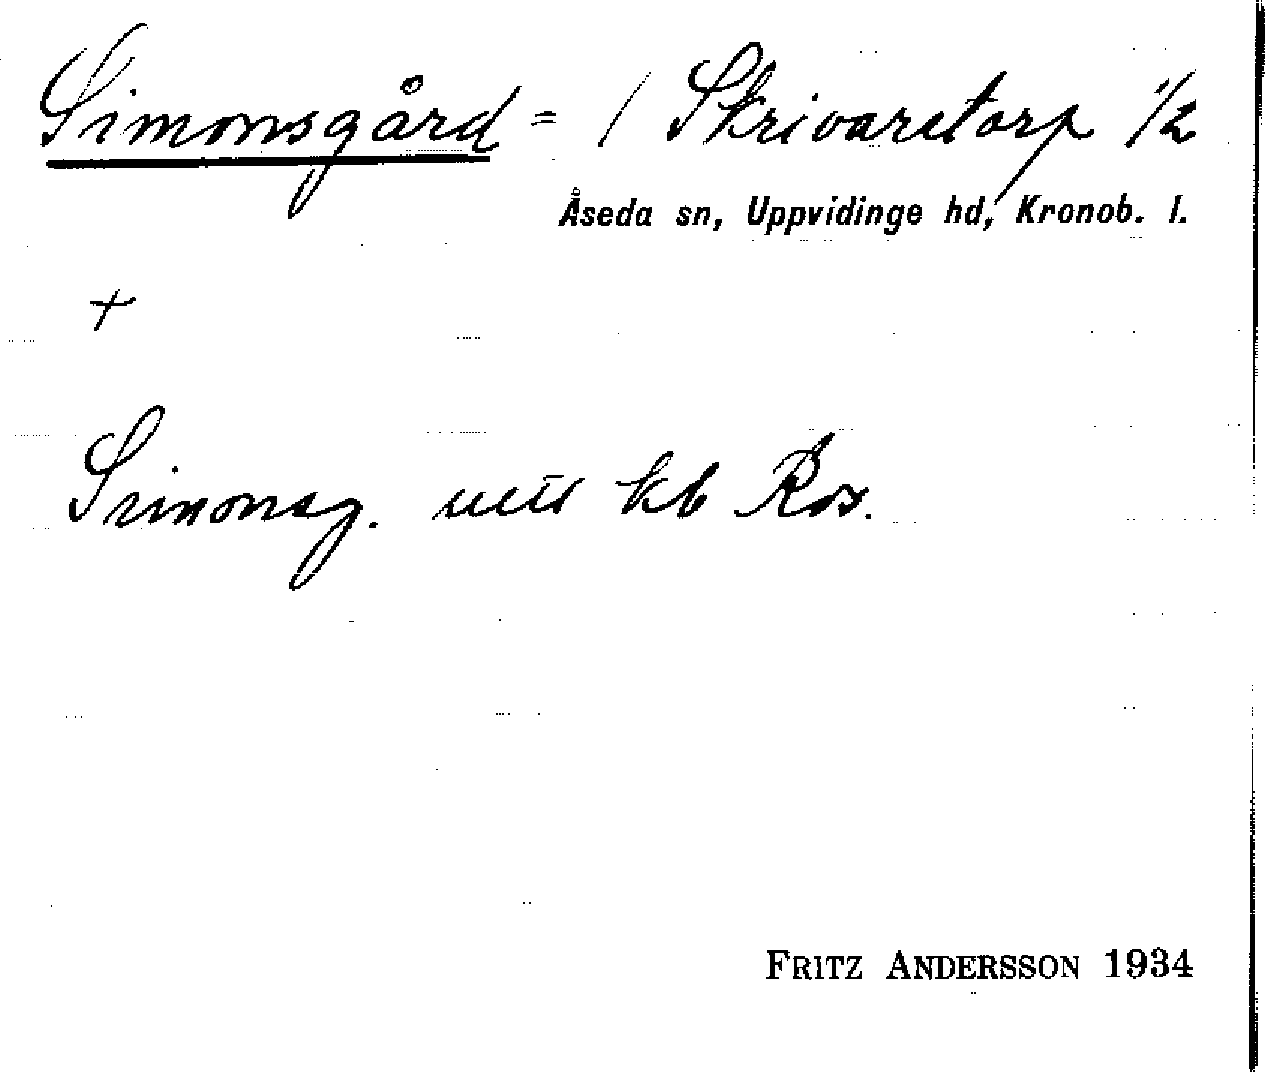 Simonsgård = / Skrivaretorp 1/2
Åseda sn, Uppvidinge hd, Kronob. l.
+
Simonsg. utt kb Ros.
FRITZ ANDERSSON 1934